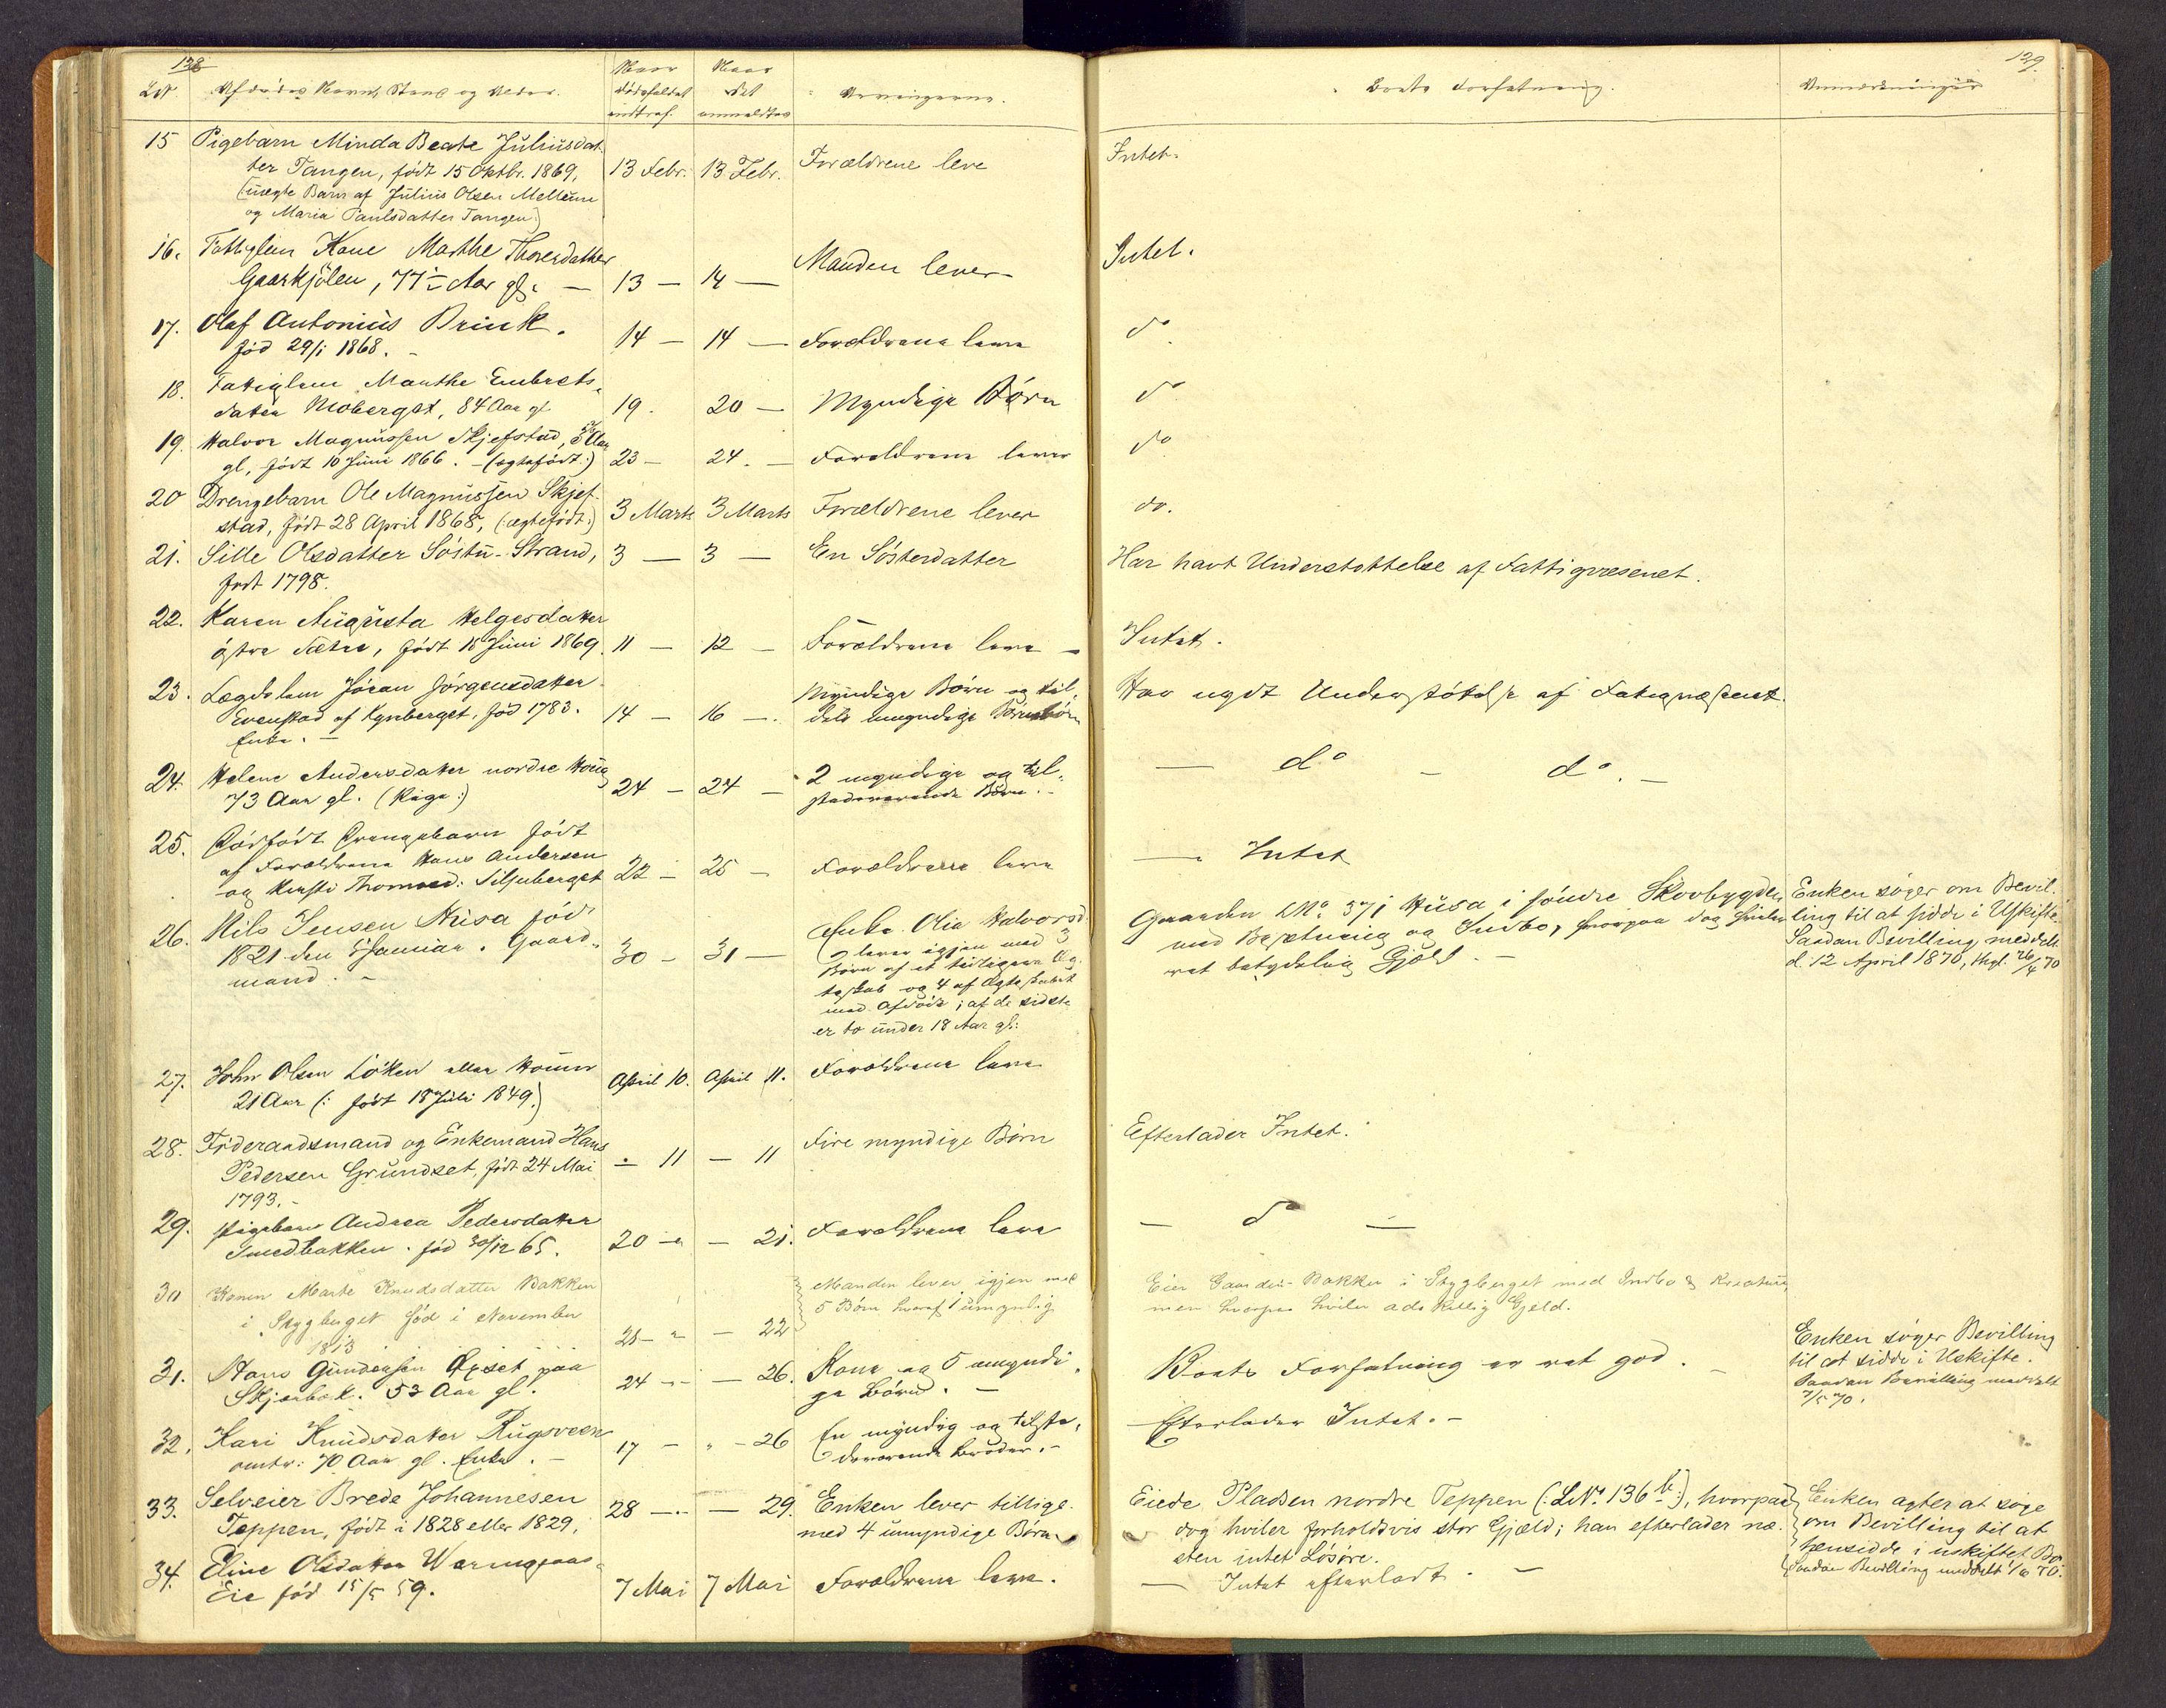 138
LN. Afdødes Navn, Stand og Alder.
Naar Dødsfaldet indtraf.
Naar det anmeldtes
Arvingerne.
15 Pigebarn Minda Beate Juliusdat-
ter Tangen, født 15 Oktbr. 1869,
(:uægte Barn af Julius Olsen Mellum
og Maria Paulsdatter Tangen:)
13 Febr. 13 Febr. Forældrene leve
16. Fattiglem Kone Marthe Thoresdatter
Gaarkjølen, 77 Aar gl. — 13 — 14 — Manden lever
17. Olaf Antonius Brink.
fød 29/1 1868. 14 — 14 — Forældrene leve
18. Fattiglem Marthe Embrets-
datter Moberget, 84 Aar gl 19. 20 — Myndige Børn
19. Halvor Magnussen Skjefstad, Aar
gl, født 10 Juni 1866. — (ægtefødt:) 23 — 24. — Forældrene lever
20 Drengebarn Ole Magnussen Skjef-
stad, født 28 April 1868, (:ægtefødt:) 3 Marts 3 Marts Forældrene lever
21. Sille Olsdatter Søstu-Strand, 3 — 3 — En Søsterdatter
født 1798.
22. Karen Augusta Helgesdatter
østre Sætre, født 18 Juni 1869. 11 — 12 — Forældrene leve —
23. Lægdslem Jøran Jørgensdatter
Evenstad af Kynberget, fød 1783.
Enke. — 14 — 16 —. Myndige Børn og til-
dels umyndige Børnebørn
24. Helene Andersdatter nordre Houg
73 Aar gl. (Pige:) 24 — 24 — 2 myndige og til-
stedeværende Børn. —
25. Dødfødt Drengebarn født
af Forældrene Hans Andersen
og Kersti Thomasd: Siljuberget 22 — 25 — Forældrene leve
26. Nils Jensen Husa fød
1821 den 8 Januar. Gaard-
mand. — 30 — 31 — Enke Olia Halvorsd
lever igjen med 3
Børn af et tidligere Æg-
teskab og 4 af Ægteskabet
med Afdøde; af de sidste
er to under 18 Aar gl:
27. John Olsen Løken eller Houm
21 Aar (: født 18 Juli 1849.) April 10. April 11. Forældrene leve
28. Føderaadsmand og Enkemand Hans
Pedersen Grundset, født 24 Mai
1793. — — 11 — 11 Fire myndige Børn
29. Pigebarn Andrea Pedersdatter
Smedbakken. fød 30/12 65. 20 — — 21. Forældrene leve
30 Konen Marte Knudsdatter Bakken
i Skygberget fød i November
1813 21 — — 22 Manden lever igjen med
5 Børn hvoraf 1 umyndig
31. Hans Gundersen Øxset paa
Skjærbæk. 53 Aar gl. 24 — — 26. Kone og 5 umyndi-
ge Børn. —
32. Kari Knudsdatter Rugsveen
omtr: 70 Aar gl. Enke. — 17 — — 26 En myndig og tilste-
deværende Broder. —
33. Selveier Brede Johannesen
Teppen, født i 1828 eller 1829, 28 — — 29. Enken lever tillige-
med 4 umyndige Børn
34. Eline Olsdatter
Eie fød 15/5 59. 7 Mai 7 Mai Forældrene leve.
139.
Boets Forfatning.
Anmærkninger
Intet.
Intet.
do
do
do
do.
Har havt Understøttelse af Fattigvæsenet.
Intet.
Har nydt Understøttelse af Fattigvæsenet.
— do — do. —
— Intet
Gaarden LNo. 371 Husa i søndre Skovbygden
med Besætning og Indbo, hvorpaa dog hviler
ret betydelig Gjæld. —
Enken søger om Bevil-
ling til at sidde i Uskifte.
Saadan Bevilling meddelt
d. 12 April 1870, 26/4 70
Efterlader Intet.
— do —
Eier Gaarden Bakken i Skygberget med Indbo & Kreature,
men hvorpaa hviler adskillig Gjeld.
Boets Forfatning er ret god. —
Enken søger Bevilling
til at sidde i Uskifte.
Saadan Bevilling meddelt
7/5 70.
Efterlader Intet. —
Eiede Pladsen nordre Teppen (: LNr. 136 b:), hvorpaa
dog hviler forholdsvis stor Gjæld; han efterlader næ-
sten intet Løsøre.
Enken agter at søge
om Bevilling til at
hensidde i uskiftet Bo.
Saadan Bevilling meddelt 1/6 70.
— Intet efterladt. —